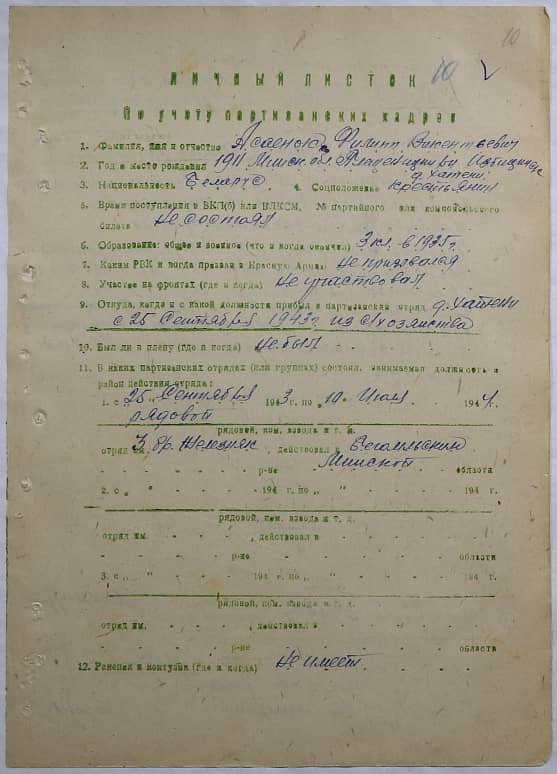 10
10
ЛИЧНЫЙ ЛИСТОК
По учету партизанских кадров
1. Фамилия, имя и отчество Асаенок Филипп Викентьевич
2. Год и место рождения 1911 Минск. обл. Плещеницкий
д. Хатени.
3. Национальность Беларус. 4. Соцположение крестьянин
5. Время поступления в ВКП(б) или ВЛКСМ, № партийного или комсомольского
билета Не состоял
6. Образование: общее и военное (что и когда окончил) 3 кл. в 1925 г.
7. Каким РВК и когда призван в Красную Армию Не призвался
8. Участие на фронтах (где и когда) Не участвовал
9. Откуда, когда и с какой должности прибыл в партизанский отряд д. Хатени
с 25 Сентября 1943 г. из с/хозяйства
10. Был ли в плену (где и когда) Не был
11. В каких партизанских отрядах (или группах) состоял, занимаемая должность и
район действия отряда:
1. с 25 Сентября 1943 г. по „ 10 Июля 1944.
рядовой
рядовой, ком. взвода и т. д.
отряд им. 3 бр. Железняк, действовал в Бегомльский
Минской
р-не области
2. с „ " 194 г. по „ " 194 г.
рядовой, ком. взвода и т. д.
отряд им. , действовал в
р-не области
3. с „ " 194 г. по „ " 194 г.
рядовой, ком. взвода и т. д.
отряд им. , действовал в
р-не области
12. Ранения и контузии (где и когда) Не имеет.